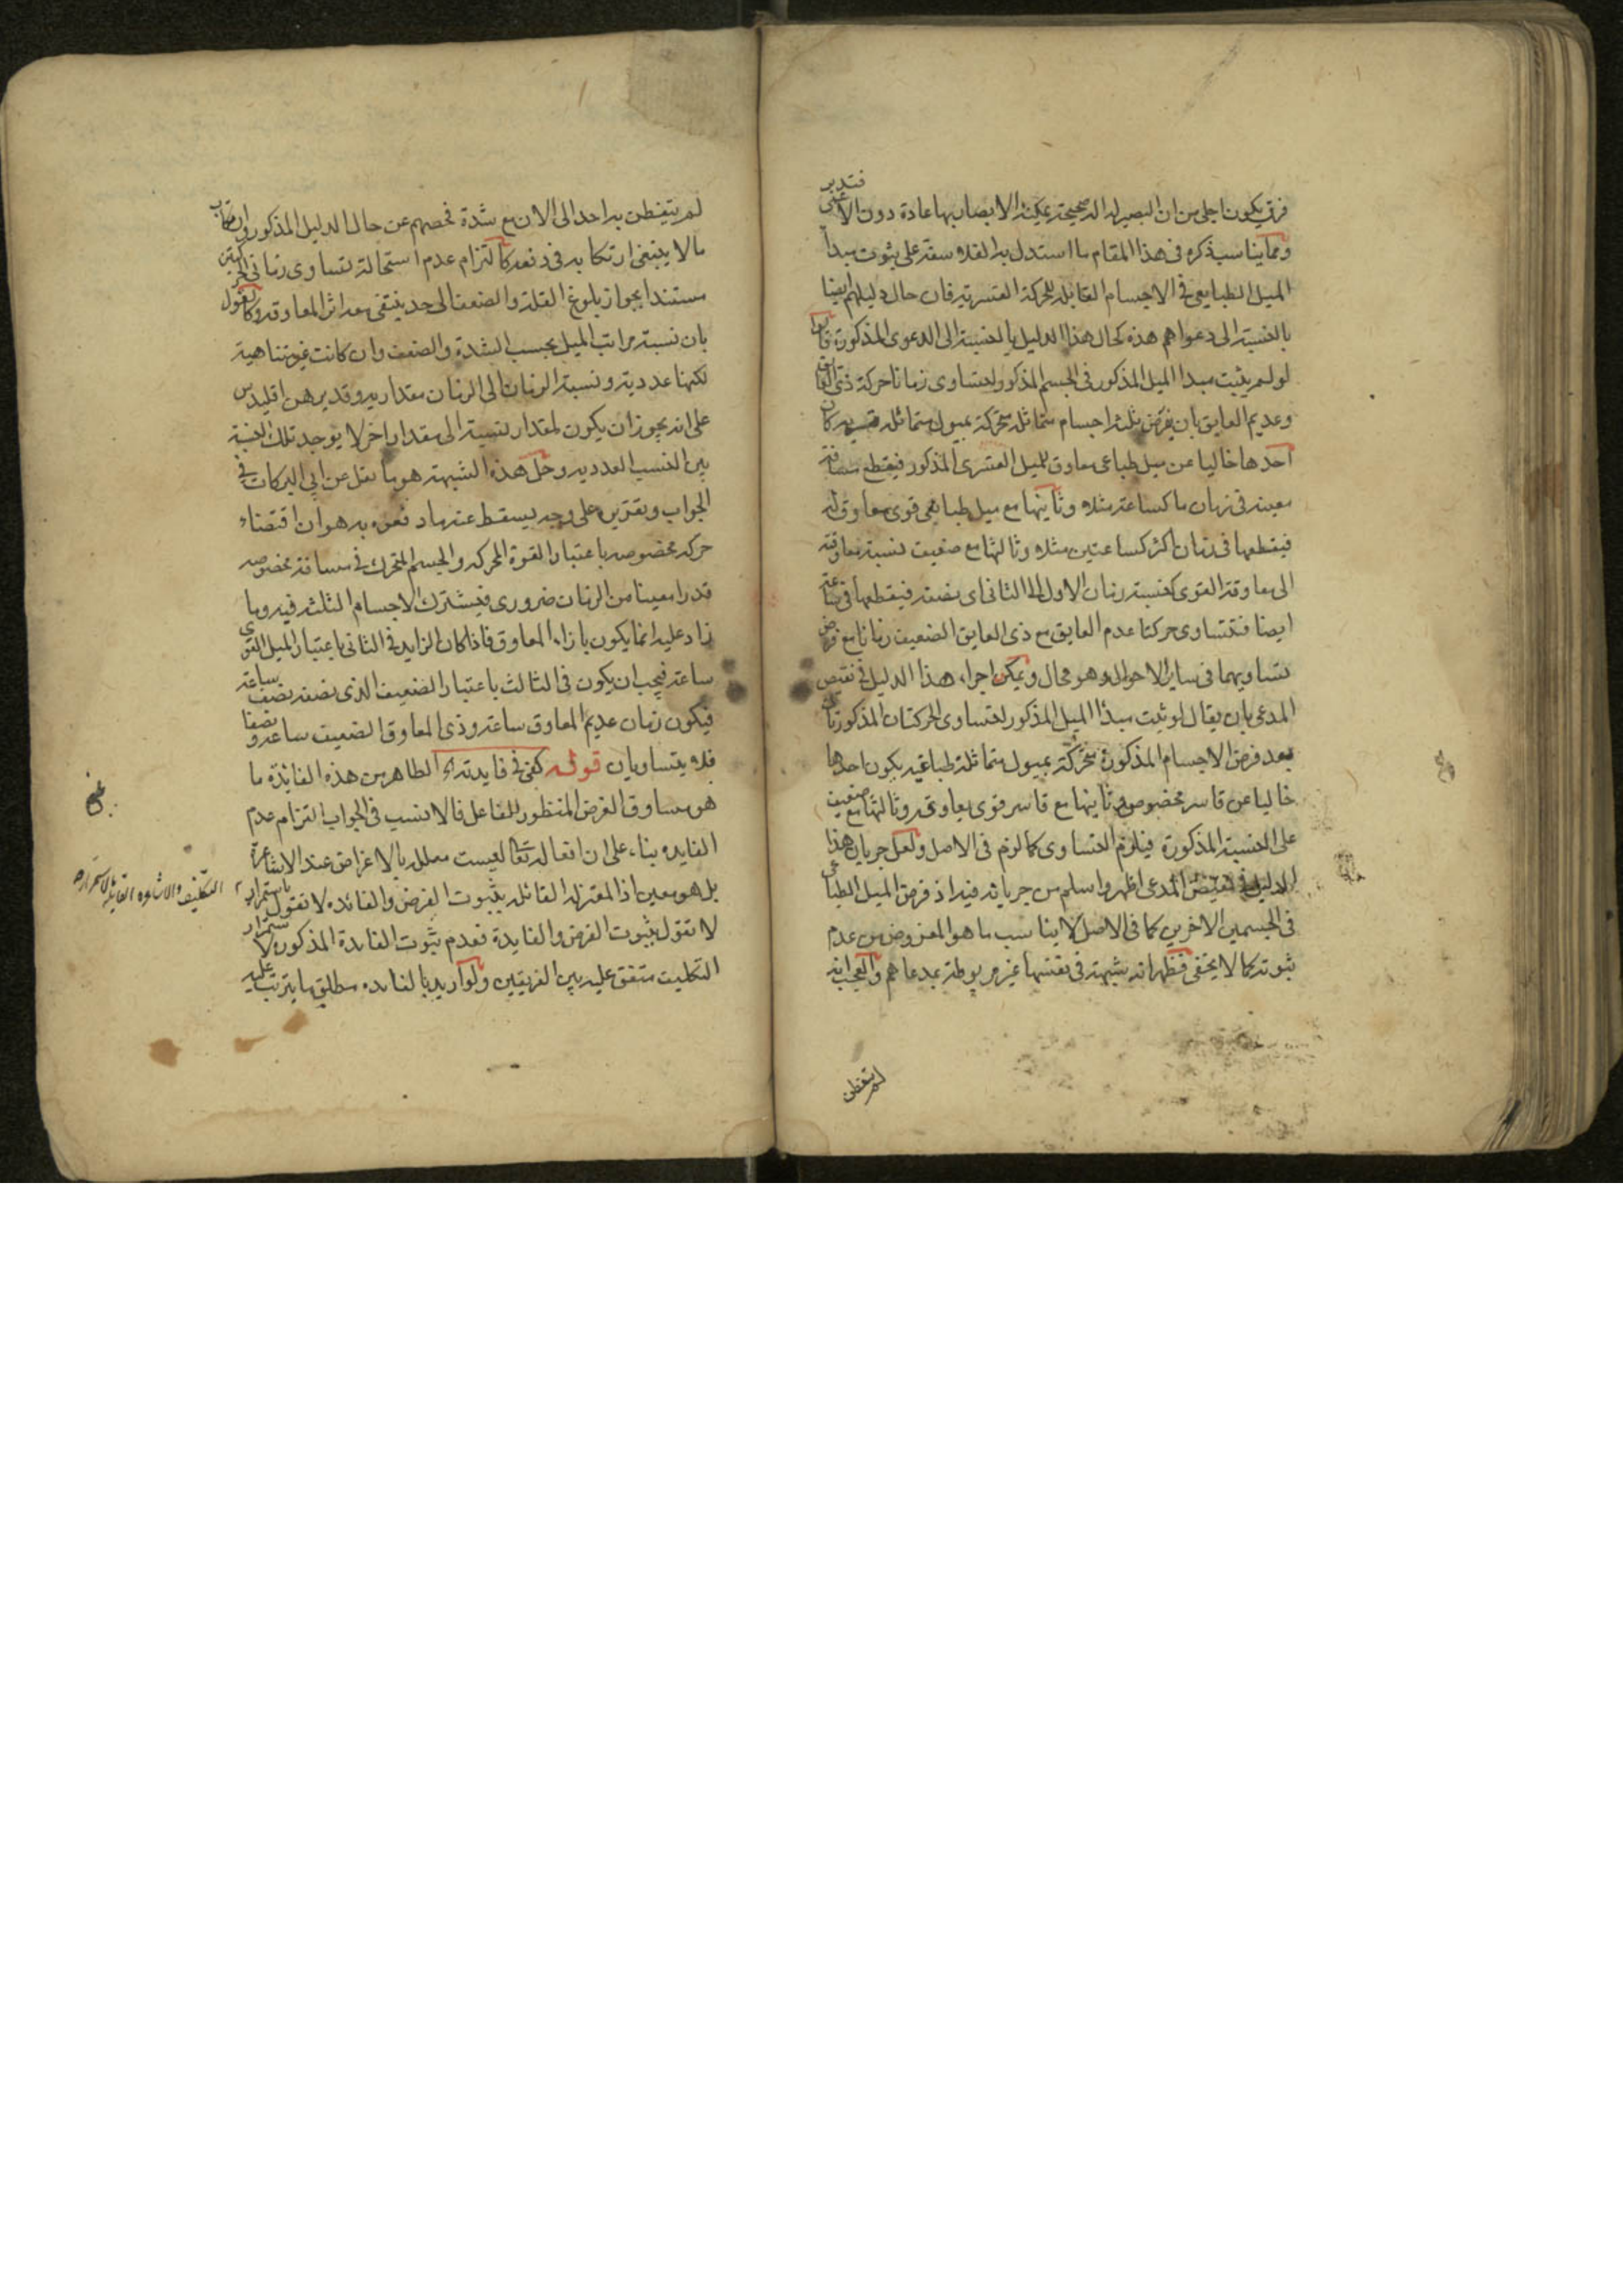 فتدبر
فرق يكون اجلى من ان البصير له الة صحيحة يمكنه الابصار بها عادة دون الاعمى
ومما يناسب ذكره في هذا المقام ما استدل به الفلاسفة على ثبوت مبدأ
الميل الطباعي في الاجسام القابلة للحركة القسرية فان حال دليلهم ايضا
بالنسبة الى دعواهم هذه كحال هذا الدليل بالنسبة الى الدعوى المذكورة قالوا
لو لم يثبت مبدا الميل المذكور في الجسم المذكور لتساوى زمانا حركة ذي العائق
وعديم العايق بان يفرض ثلثة اجسام متماثلة متحركة بميول متماثلة قسرية كان
احدها خاليا عن ميل طباعي معاوق للميل القسري المذكور فيقطع مسافة
معينة في زمان ما كساعة مثلا وثانيها مع ميل طباعي قوي معاوق له
فيقطعها في زمان اكثر كساعتين مثلا وثالثها مع ضعيف نسبة معاوقته
الى معاوقة القوي كنسبة زمان الاول الى الثاني اى نصفه فيقطعها في ساعة
ايضا فتتساوى حركتا عدم العايق مع ذي العايق الضعيف زمانا مع فرض
تساويهما في ساير الاحوال وهو محال ويمكن اجراء هذا الدليل في نقيض
المدعى بان يقال لو ثبت مبدأ الميل المذكور لتساوى الحركتان المذكورتان
بعد فرض الاجسام المذكورة متحركة بميول متماثلة طباعية يكون احدها
خاليا عن قاسر مخصوص وثانيها مع قاسر قوى يعاوقه وثالثها مع ضعيف
على النسبة المذكورة فيلزم التساوى كما لزم في الاصل ولعل جريان هذا
الدليل في نقيض المدعى اظهر واسلم من جريانه فيه اذ فرض الميل الطباعي
في الجسمين الاخرين كما في الاصل لا يناسب ما هو المفروض من عدم
ثبوته كما لا يخفى فظهر انه شبهة في نفسها غير مربوطة بمدعاهم والعجب انه
لم يتفطن
لم يتفطن به احد الى الان مع شدة فحصهم عن حال الدليل المذكور وارتكاب
ما لا ينبغي ارتكابه في دفعه كالتزام عدم استحالة تساوى زماني الحركتين
مستندا بجواز بلوغ القلة والضعف الى حد ينتفي معه اثر المعاوقة وكالقول
بان نسبة مراتب الميل بحسب الشدة والضعف وان كانت غير متناهية
لكنها عددية ونسبة الزمان الى الزمان مقدارية وقد برهن اقليدس
على انه يجوز ان يكون لمقدار نسبة الى مقدار اخر لا يوجد تلك النسبة
بين النسب العددية وحل هذه الشبهة هو ما نقل عن ابي البركات في
الجواب وتقريره على وجه يسقط عنه ما دفعوه به هو ان اقتضاء
حركة مخصوصة باعتبار القوة المحركة والجسم المتحرك في مسافة مخصوصة
قدرا معينا من الزمان ضروري فيشترك الاجسام الثلثة فيه وما
زاد عليه انما يكون بازاء المعاوق فاذا كان الزايد في الثاني باعتبار الميل القوي
ساعة فيجب ان يكون في الثالث باعتبار الضعيف الذي نصفه نصف ساعة
فيكون زمان عديم المعاوق ساعة وذي المعاوق الضعيف ساعة ونصفا
فلا يتساويان قوله كفى في فايدته الخ الظاهر من هذه الفائدة ما
هو مساوق الغرض المنظور للفاعل فالانسب في الجواب التزام عدم
الفايده بناء على ان افعاله تعالى ليست معللة بالاغراض عند الاشاعرة
بل هو معين اذ المعتزلة القائلة بثبوت الغرض والفائده لا تقول باستمرار
التكليف والاشاعرة القايلة باستمراره
لا تقول بثبوت الغرض والفايدة فعدم ثبوت الفايدة المذكورة لاستمرار
التكليف متفق عليه بين الفريقين ولو اريد بالفايده مطلق ما يترتب عليه